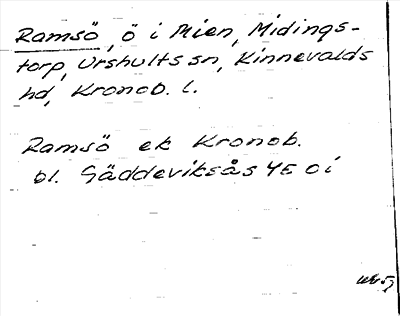 Ramsö, ö i Mien, Midings-
torp, Urshults sn, Kinnevalds
hd, Kronob. l.
Ramsö ek Kronob.
bl. Gäddeviksås 4E c i